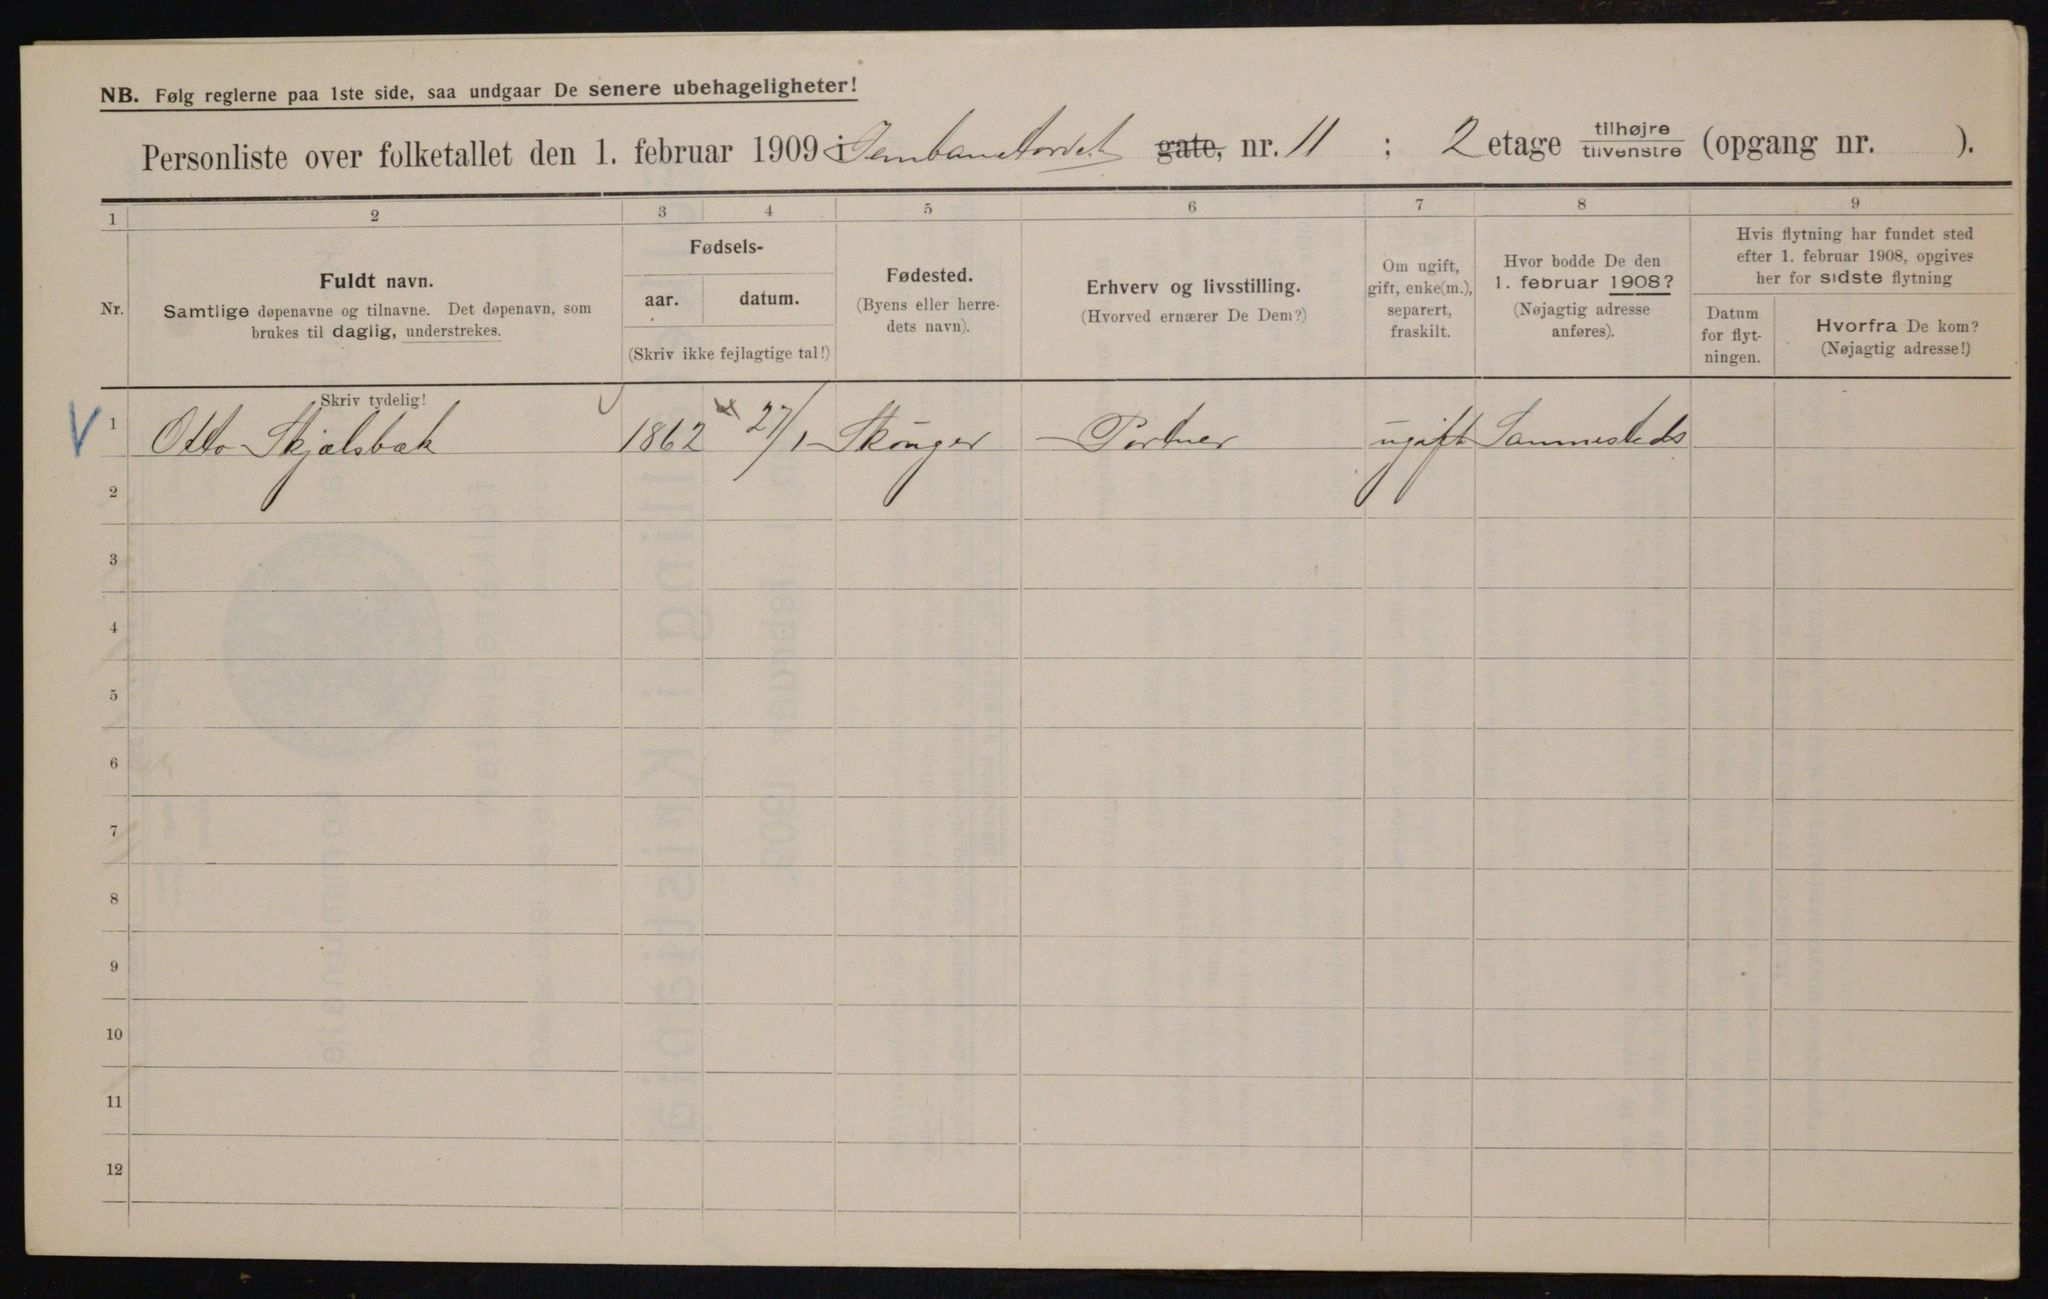 NB. Følg reglerne paa 1ste side, saa undgaar De senere ubehageligheter!
Personliste over folketallet den 1. februar 1909 i Jernbanetorvet gate, nr. 11 ; 2 etage tilhøjre/tilvenstre (opgang nr. ).
1 2 3 4 5 6 7 8 9
Nr.
Fuldt navn.
Samtlige døpenavne og tilnavne. Det døpenavn, som
brukes til daglig, understrekes.
Fødsels-
aar. datum.
(Skriv ikke fejlagtige tal!)
Fødested.
(Byens eller herre-
dets navn).
Erhverv og livsstilling.
(Hvorved ernærer De Dem?)
Om ugift,
gift, enke(m.),
separert,
fraskilt.
Hvor bodde De den
1. februar 1908?
(Nøjagtig adresse
anføres).
Hvis flytning har fundet sted
efter 1. februar 1908, opgives
her for sidste flytning
Datum
for flyt-
ningen.
Hvorfra De kom?
(Nøjagtig adresse!)
Skriv tydelig!
1 Otto Skjælsbæk 1862 27/1 Portner ugift Sammesteds
2
3
4
5
6
7
8
9
10
11
12